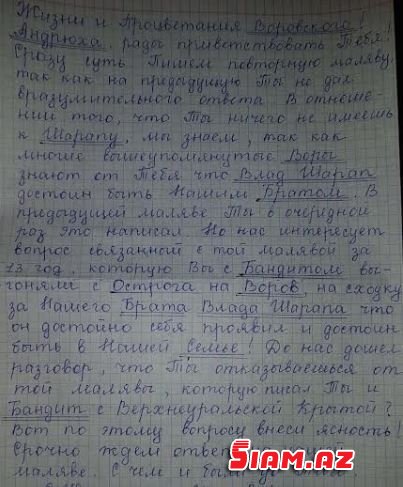 Жизни и Процветания Воровского!
Андрюха, рады приветствовать Тебя!
Сразу суть. Пишем повторную маляву,
так как на предыдущую Ты не дал
вразумительного ответа. В отноше-
нии того, что Ты ничего не имеешь
к Шарапу, мы знаем, так как
многие вышеупомянутые Воры
знают от Тебя что Влад Шарап
достоин быть Нашим Братом. В
предыдущей маляве Ты в очередной
раз это написал. Но нас интересует
вопрос связанный с той малявой за
13 год, которую Вы с Бандитом вы-
гоняли с Острога на Воров, на сходку
за Нашего Брата Влада Шарапа что
он достойно себя проявил и достоин
быть в Нашей Семье! До нас дошел
разговор, что Ты отказываешься от
той малявы, которую писал Ты и
Бандит с Верхнеуральской Крытой?
Вот по этому вопросу внеси ясность!
Срочно ждем ответ
маляве. С чем и были
SIAM.AZ